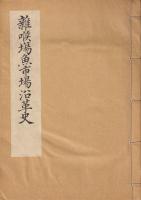 雜喉場魚市場沿革史